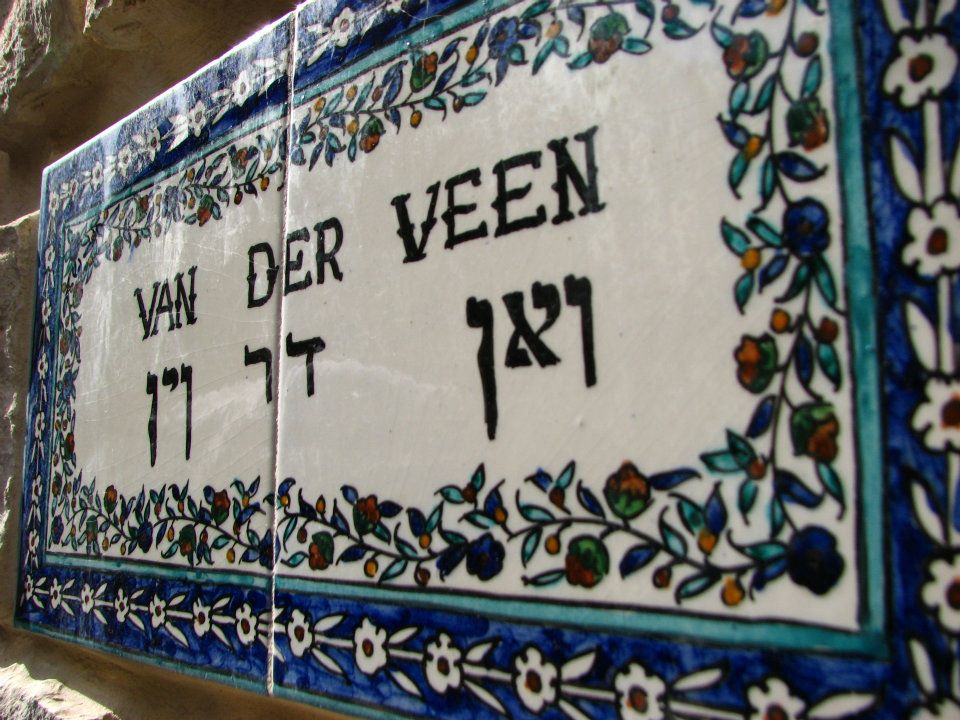 VAN DER VEEN
ואן דר וין